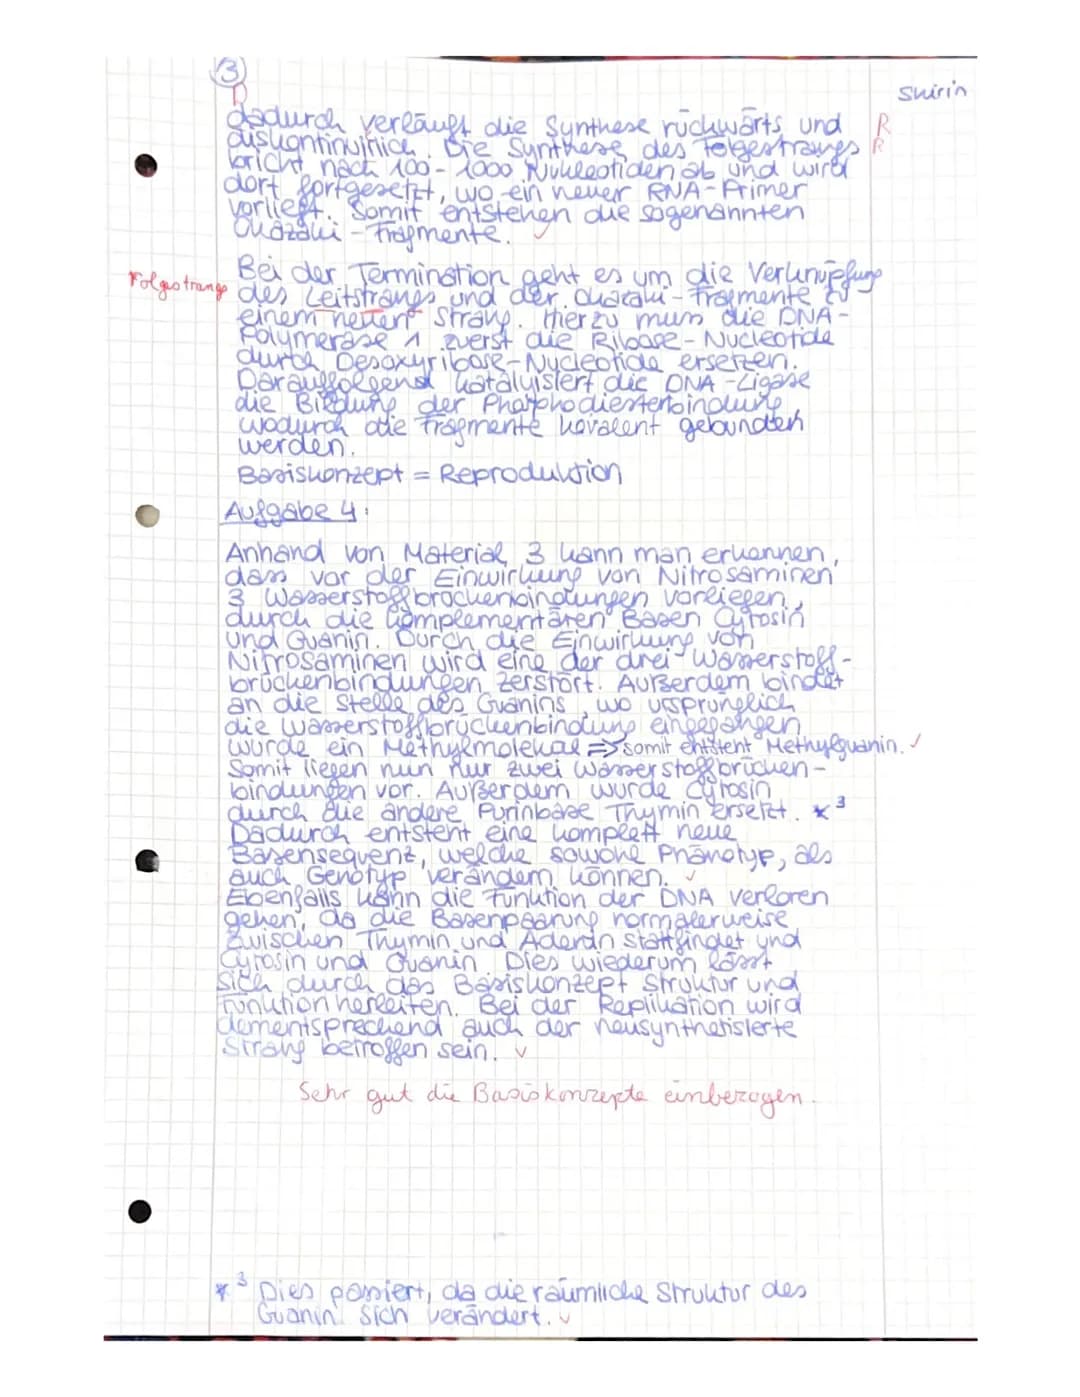 3
Shirin
D
dadurch verläuft die Synthese rückwärts und R
diskontinuirlich. Die Synthese des Folgestrangs R
bricht nach 100-1000 Nukleotiden ab und wird
dort fortgesetzt, wo ein neuer RNA-Primer
vorliegt. Somit entstehen die sogenannten
Okazaki-Fragmente. ✓
Bei der Termination geht es um die Verknüpfung
Folgestrangs des Leitstrangs und der Okazaki-Fragmente zu
einem neuen Strang. Hierzu muss die DNA-
Polymerase 1 zuerst die Ribose-Nucleotide
durch Desoxyribose-Nucleotide ersetzen.
Darauffolgend katalysiert die DNA-Ligase
die Bildung der Phosphodiesterbindung
wodurch die Fragmente kovalent gebunden
werden.
Basiskonzept = Reproduktion
Aufgabe 4:
Anhand von Material 3 kann man erkennen,
dass vor der Einwirkung von Nitrosaminen
3 Wasserstoffbrückenbindungen vorliegen,
durch die komplementären Basen Cytosin
und Guanin. Durch die Einwirkung von
Nitrosaminen wird eine der drei Wasserstoff-
brückenbindungen zerstört. Außerdem bindet
an die Stelle des Guanins, wo ursprünglich
die Wasserstoffbrückenbindung eingegangen
wurde ein Methylmolekül => somit entsteht Methylguanin. ✓
Somit liegen nun nur zwei Wasserstoffbrücken-
bindungen vor. Außerdem wurde Cytosin
durch die andere Purinbase Thymin ersetzt. *3
Dadurch entsteht eine komplett neue
Basensequenz, welche sowohl Phänotyp, als
auch Genotyp verändern können. ✓
Ebenfalls kann die Funktion der DNA verloren
gehen, da die Basenpaarung normalerweise
zwischen Thymin und Adenin stattfindet und
Cytosin und Guanin. Dies wiederum lässt
sich durch das Basiskonzept Struktur und
Funktion herleiten. Bei der Replikation wird
dementsprechend auch der neusynthetisierte
Strang betroffen sein. ✓
Sehr gut die Basiskonzepte einbezogen.
*3 Dies passiert, da die räumliche Struktur des
Guanin sich verändert. ✓